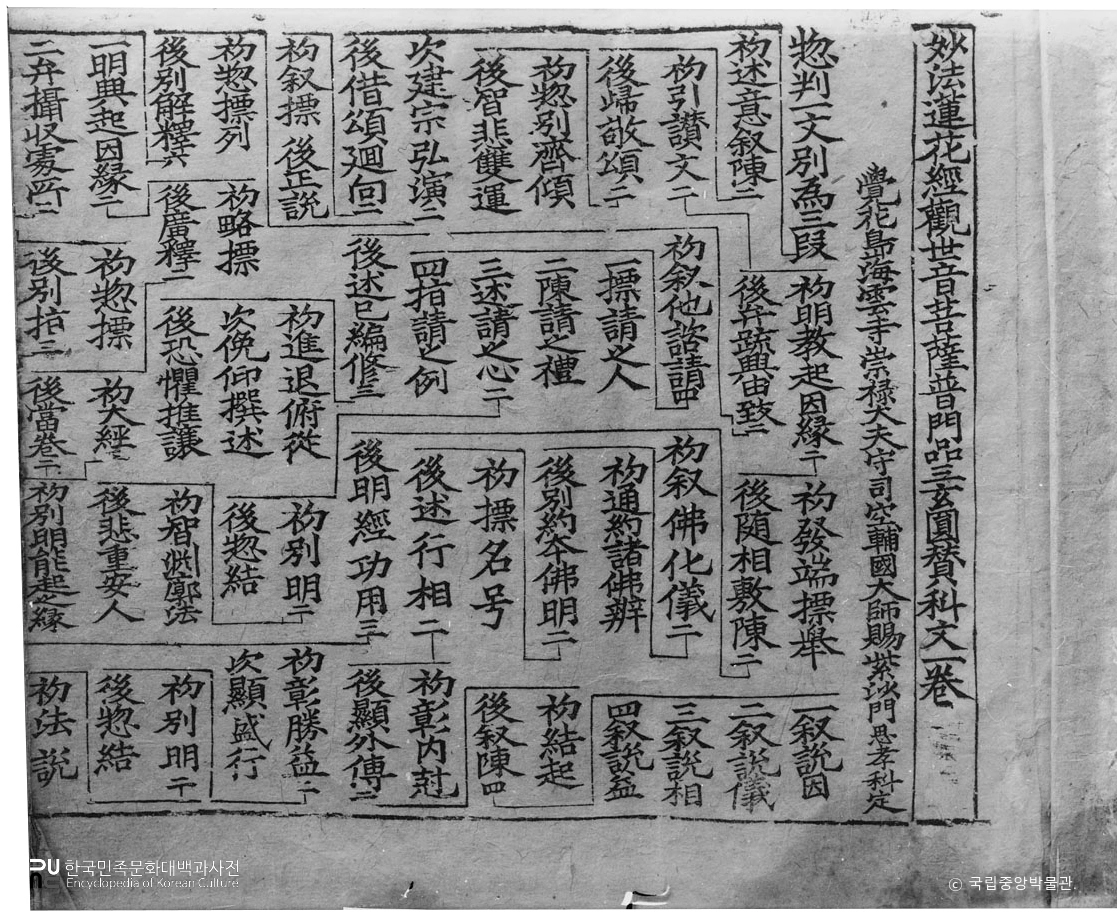 妙法蓮花經觀世音菩薩普門品三玄圓賛科文一卷
覺花島海雲寺崇禄大夫守司空輔國大師賜紫沙門思孝科定
惣判一文別為三段
初明教起因緣二
初發端標舉
一叙說因
初述意叙陳二
後弁疏興由致二
後随相敷陳二
二叙說儀
初引讃文二
初叙他諮請四
初叙佛化儀二
三叙說相
後歸敬頌二
一標請之人
初通約諸佛辨
四叙說益
初惣別齊傾
二陳請之禮
後別約本佛明二
初結起
後智悲雙運
三述請之心二
初標名号
後叙陳四
次建宗弘演二
四指請之例
後述行相二
初彰內封
後借頌廻向二
後述已編修三
後明經功用三
後顯外傳二
初叙標
後正說
初進退俯從
初別明二
初彰勝益二
初惣標列
初略標
次俛仰撰述
後惣結
次顯盛行
後別解釋六
後廣釋二
後恐懼推讓
初智渕廓法
初別明二
一明興起因緣二
初惣標
初大經
後悲重安人
後惣結
二弁攝収處所二
後別指三
後當卷二
初別明能起之緣
初法說
한국민족문화대백과사전
Encyclopedia of Korean Culture
© 국립중앙박물관